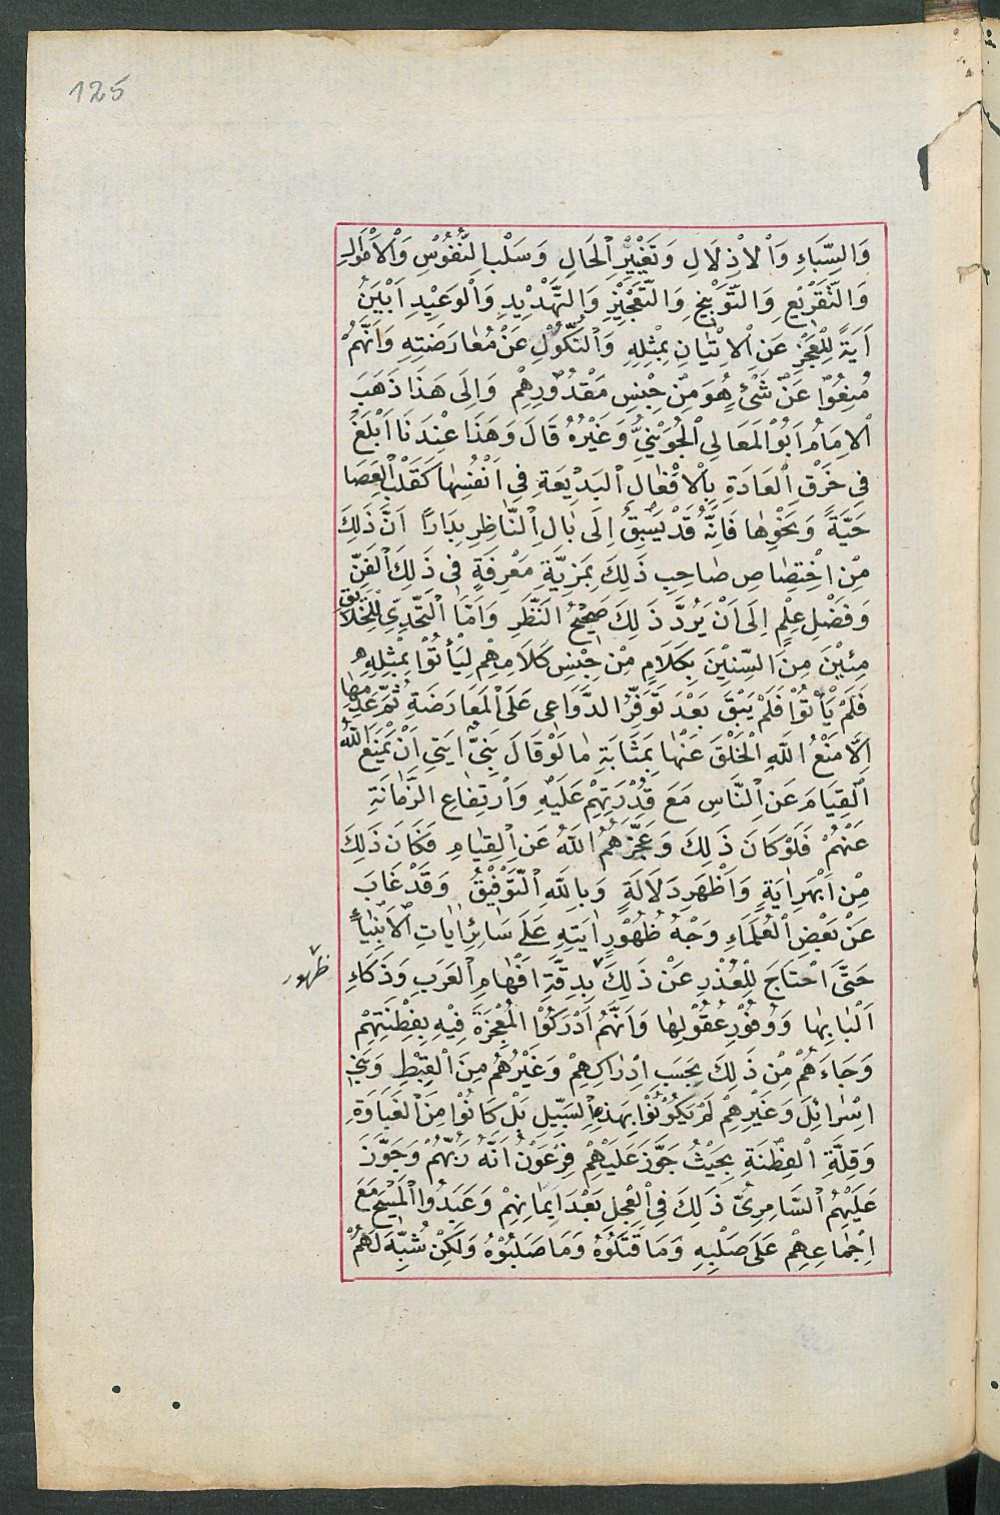 125
وَالسِّبَاءِ وَالْاِذْلَالِ وَتَغْيِيْرِ الْحَالِ وَسَلْبِ النُّفُوْسِ وَالْاَمْوَالِ
وَالتَّقْرِيْعِ وَالتَّوْبِيْخِ وَالتَّعْجِيْزِ وَالتَّهْدِيْدِ وَالْوَعِيْدِ اَبْيَنُ
اٰيَةً لِلْعَجْزِ عَنِ الْاِتْيَانِ بِمِثْلِهِ وَالنُّكُوْلِ عَنْ مُعَارَضَتِهِ وَاَنَّهُمْ
مُنِعُوْا عَنْ شَئٍ هُوَ مِنْ جِنْسِ مَقْدُوْرِهِمْ وَاِلَى هَذَا ذَهَبَ
الْاِمَامُ اَبُوْ الْمَعَالِى الْجُوَيْنِىُّ وَغَيْرُهُ قَالَ وَهَذَا عِنْدَنَا اَبْلَغُ
فِى خَرْقِ الْعَادَةِ بِالْاَفْعَالِ الْبَدِيْعَةِ فِى اَنْفُسِهَا كَقَلْبِ الْعَصَا
حَيَّةً وَنَحْوِهَا فَاِنَّهُ قَدْ يَسْبِقُ اِلَى بَالِ النَّاظِرِ بِدَارًا اَنَّ ذَلِكَ
مِنْ اخْتِصَاصِ صَاحِبِ ذَلِكَ بِمَزِيَّةِ مَعْرِفَةٍ فِى ذَلِكَ الْفَنِّ
وَفَضْلِ عِلْمٍ اِلَى اَنْ يَرُدَّ ذَلِكَ صَحِيْحُ النَّظَرِ وَاَمَّا التَّحَدِّى لِلْخَلَائِقِ
مِئِيْنَ مِنَ السِّنِيْنَ بِكَلَامٍ مِنْ جِنْسِ كَلَامِهِمْ لِيَأْتُوْا بِمِثْلِهِ
فَلَمْ يَأْتُوْا فَلَمْ يَبْقَ بَعْدَ تَوَفُّرِ الدَّوَاعِى عَلَى الْمُعَارَضَةِ ثُمَّ عَدَمِهَا
اِلَّا مَنْعُ اللّٰهِ الْخَلْقَ عَنْهَا بِمَثَابَةِ مَا لَوْ قَالَ نَبِىٌّ اٰيَتِى اَنْ يَمْنَعَ اللّٰهُ
الْقِيَامَ عَنِ النَّاسِ مَعَ قُدْرَتِهِمْ عَلَيْهِ وَارْتِفَاعِ الزَّمَانَةِ
عَنْهُمْ فَلَوْ كَانَ ذَلِكَ وَعَجَّزَهُمُ اللّٰهُ عَنِ الْقِيَامِ فَكَانَ ذَلِكَ
مِنْ اَبْهَرِ اٰيَةٍ وَاَظْهَرِ دَلَالَةٍ وَبِاللّٰهِ التَّوْفِيْقُ وَقَدْ غَابَ
عَنْ بَعْضِ الْعُلَمَاءِ وَجْهُ ظُهُوْرِ اٰيَتِهِ عَلَى سَائِرِ اٰيَاتِ الْاَنْبِيَاءِ
حَتَّى احْتَاجَ لِلْعُذْرِ عَنْ ذَلِكَ بِدِقَّةِ اَفْهَامِ الْعَرَبِ وَذَكَاءِ
ظهور
اَلْبَابِهَا وَوُفُوْرِ عُقُوْلِهَا وَاَنَّهُمْ اَدْرَكُوْا الْمُعْجِزَةَ فِيْهِ بِفِطْنَتِهِمْ
وَجَاءَهُمْ مِنْ ذَلِكَ بِحَسَبِ اِدْرَاكِهِمْ وَغَيْرُهُمْ مِنَ الْقِبْطِ وَبَنِى
اِسْرَائِلَ وَغَيْرِهِمْ لَمْ يَكُوْنُوْا بِهَذِهِ السَّبِيْلِ بَلْ كَانُوْا مِنَ الْغَبَاوَةِ
وَقِلَّةِ الْفِطْنَةِ بِحَيْثُ جَوَّزَ عَلَيْهِمْ فِرْعَوْنُ اَنَّهُ رَبُّهُمْ وَجَوَّزَ
عَلَيْهِمُ السَّامِرِىُّ ذَلِكَ فِى الْعِجْلِ بَعْدَ اِيْمَانِهِمْ وَعَبَدُوا الْمَسِيْحَ مَعَ
اِجْمَاعِهِمْ عَلَى صَلْبِهِ وَمَا قَتَلُوْهُ وَمَا صَلَبُوْهُ وَلَكِنْ شُبِّهَ لَهُمْ